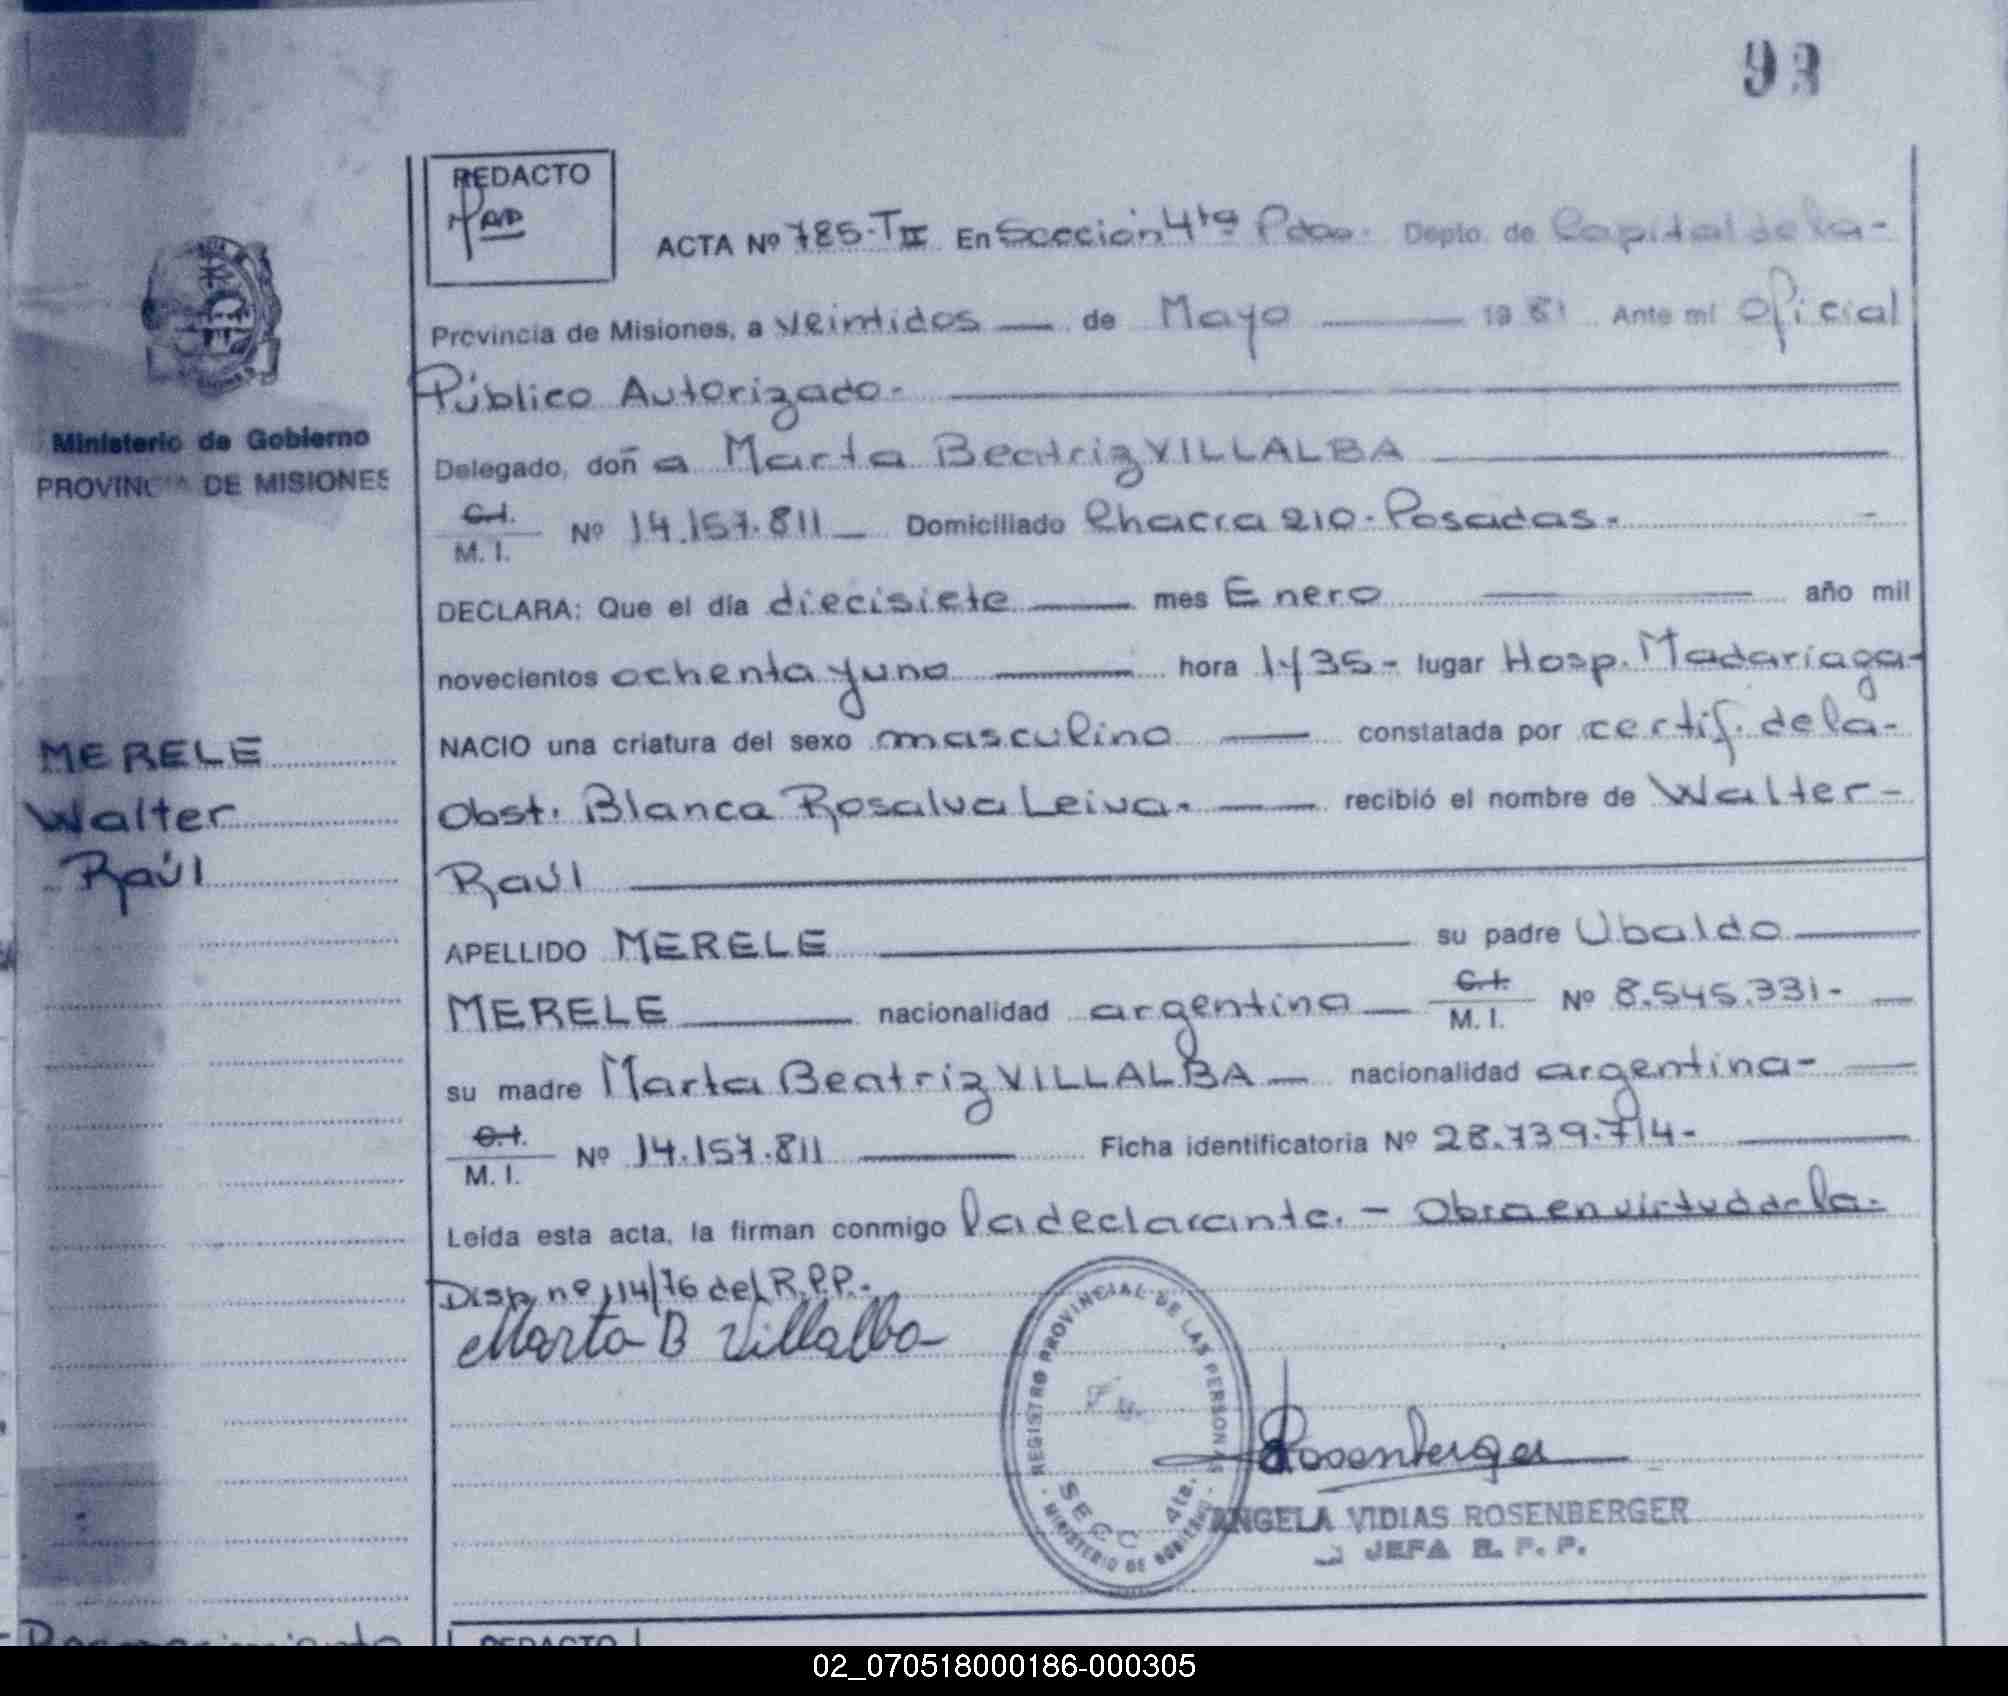 93
REDACTO
ACTA Nº 785-TII En Sección 4ta Pdas. Depto. de Capital de la-
Provincia de Misiones, a veintidos de Mayo 1981 Ante mí Oficial
Público Autorizado.-
Ministerio de Gobierno
PROVINCIA DE MISIONES
Delegado, doña Marta Beatriz VILLALBA
C.I.
M. I. Nº 14.157.811 Domiciliado Chacra 210-Posadas.-
DECLARA: Que el día diecisiete mes Enero año mil
novecientos ochenta y uno hora 1y35- lugar Hosp. Madariaga-
NACIO una criatura del sexo masculino constatada por certif. de la-
MERELE
Walter
Raúl
Obst. Blanca Rosalva Leiva.- recibió el nombre de Walter-
Raúl
APELLIDO MERELE su padre Ubaldo
MERELE nacionalidad argentina C.I.
M. I. Nº 8.545.331-
su madre Marta Beatriz VILLALBA nacionalidad argentina-
C.I.
M. I. Nº 14.157.811 Ficha identificatoria Nº 28.739.714-
Leída esta acta, la firman conmigo la declarante.- Obra en virtud de la-
Disp. nº 114/76 del R.P.P.-
Marta B Villalba
REGISTRO PROVINCIAL DE LAS PERSONAS
SECC 4ta.
MINISTERIO DE GOBIERNO
Rosenberger
ANGELA VIDIAS ROSENBERGER
JEFA R. P. P.
Reconocimiento
REDACTO
02_070518000186-000305